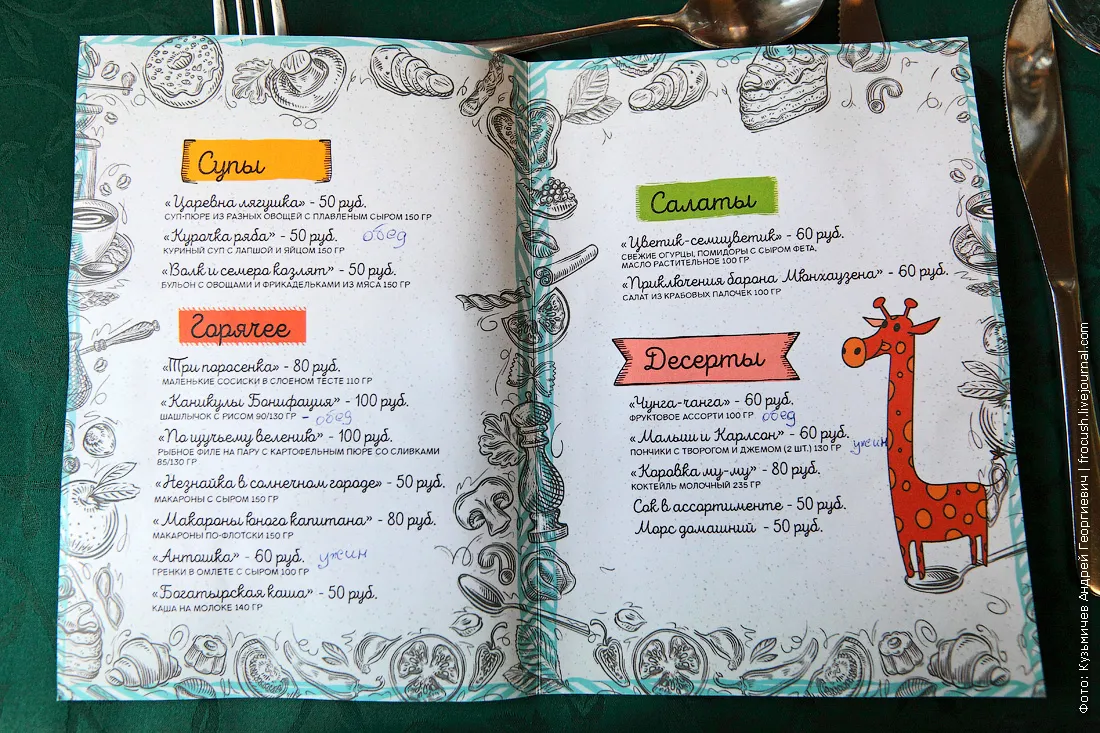 Супы
«Царевна лягушка» - 50 руб.
СУП-ПЮРЕ ИЗ РАЗНЫХ ОВОЩЕЙ С ПЛАВЛЕНЫМ СЫРОМ 150 ГР
«Курочка ряба» - 50 руб. обед
КУРИНЫЙ СУП С ЛАПШОЙ И ЯЙЦОМ 150 ГР
«Волк и семера козлят» - 50 руб.
БУЛЬОН С ОВОЩАМИ И ФРИКАДЕЛЬКАМИ ИЗ МЯСА 150 ГР
Горячее
«Три поросенка» - 80 руб.
МАЛЕНЬКИЕ СОСИСКИ В СЛОЕНОМ ТЕСТЕ 110 ГР
«Каникулы Бонифация» - 100 руб.
ШАШЛЫЧОК С РИСОМ 90/130 ГР - обед
«По щучьему велению» - 100 руб.
РЫБНОЕ ФИЛЕ НА ПАРУ С КАРТОФЕЛЬНЫМ ПЮРЕ СО СЛИВКАМИ
85/130 ГР
«Незнайка в солнечном городе» - 50 руб.
МАКАРОНЫ С СЫРОМ 150 ГР
«Макароны юного капитана» - 80 руб.
МАКАРОНЫ ПО-ФЛОТСКИ 150 ГР
«Антошка» - 60 руб. ужин
ГРЕНКИ В ОМЛЕТЕ С СЫРОМ 100 ГР
«Богатырская каша» - 50 руб.
КАША НА МОЛОКЕ 140 ГР
Салаты
«Цветик-семицветик» - 60 руб.
СВЕЖИЕ ОГУРЦЫ, ПОМИДОРЫ С СЫРОМ ФЕТА,
МАСЛО РАСТИТЕЛЬНОЕ 100 ГР
«Приключения барона Мюнхаузена» - 60 руб.
САЛАТ ИЗ КРАБОВЫХ ПАЛОЧЕК 100 ГР
Десерты
«Чунга-чанга» - 60 руб.
ФРУКТОВОЕ АССОРТИ 100 ГР обед
«Малыш и Карлсон» - 60 руб. ужин
ПОНЧИКИ С ТВОРОГОМ И ДЖЕМОМ (2 ШТ.) 130 ГР
«Коровка му-му» - 80 руб.
КОКТЕЙЛЬ МОЛОЧНЫЙ 235 ГР
Сок в ассортименте - 50 руб.
Морс домашний - 50 руб.
Фото: Кузьмичев Андрей Георгиевич | frocush.livejournal.com